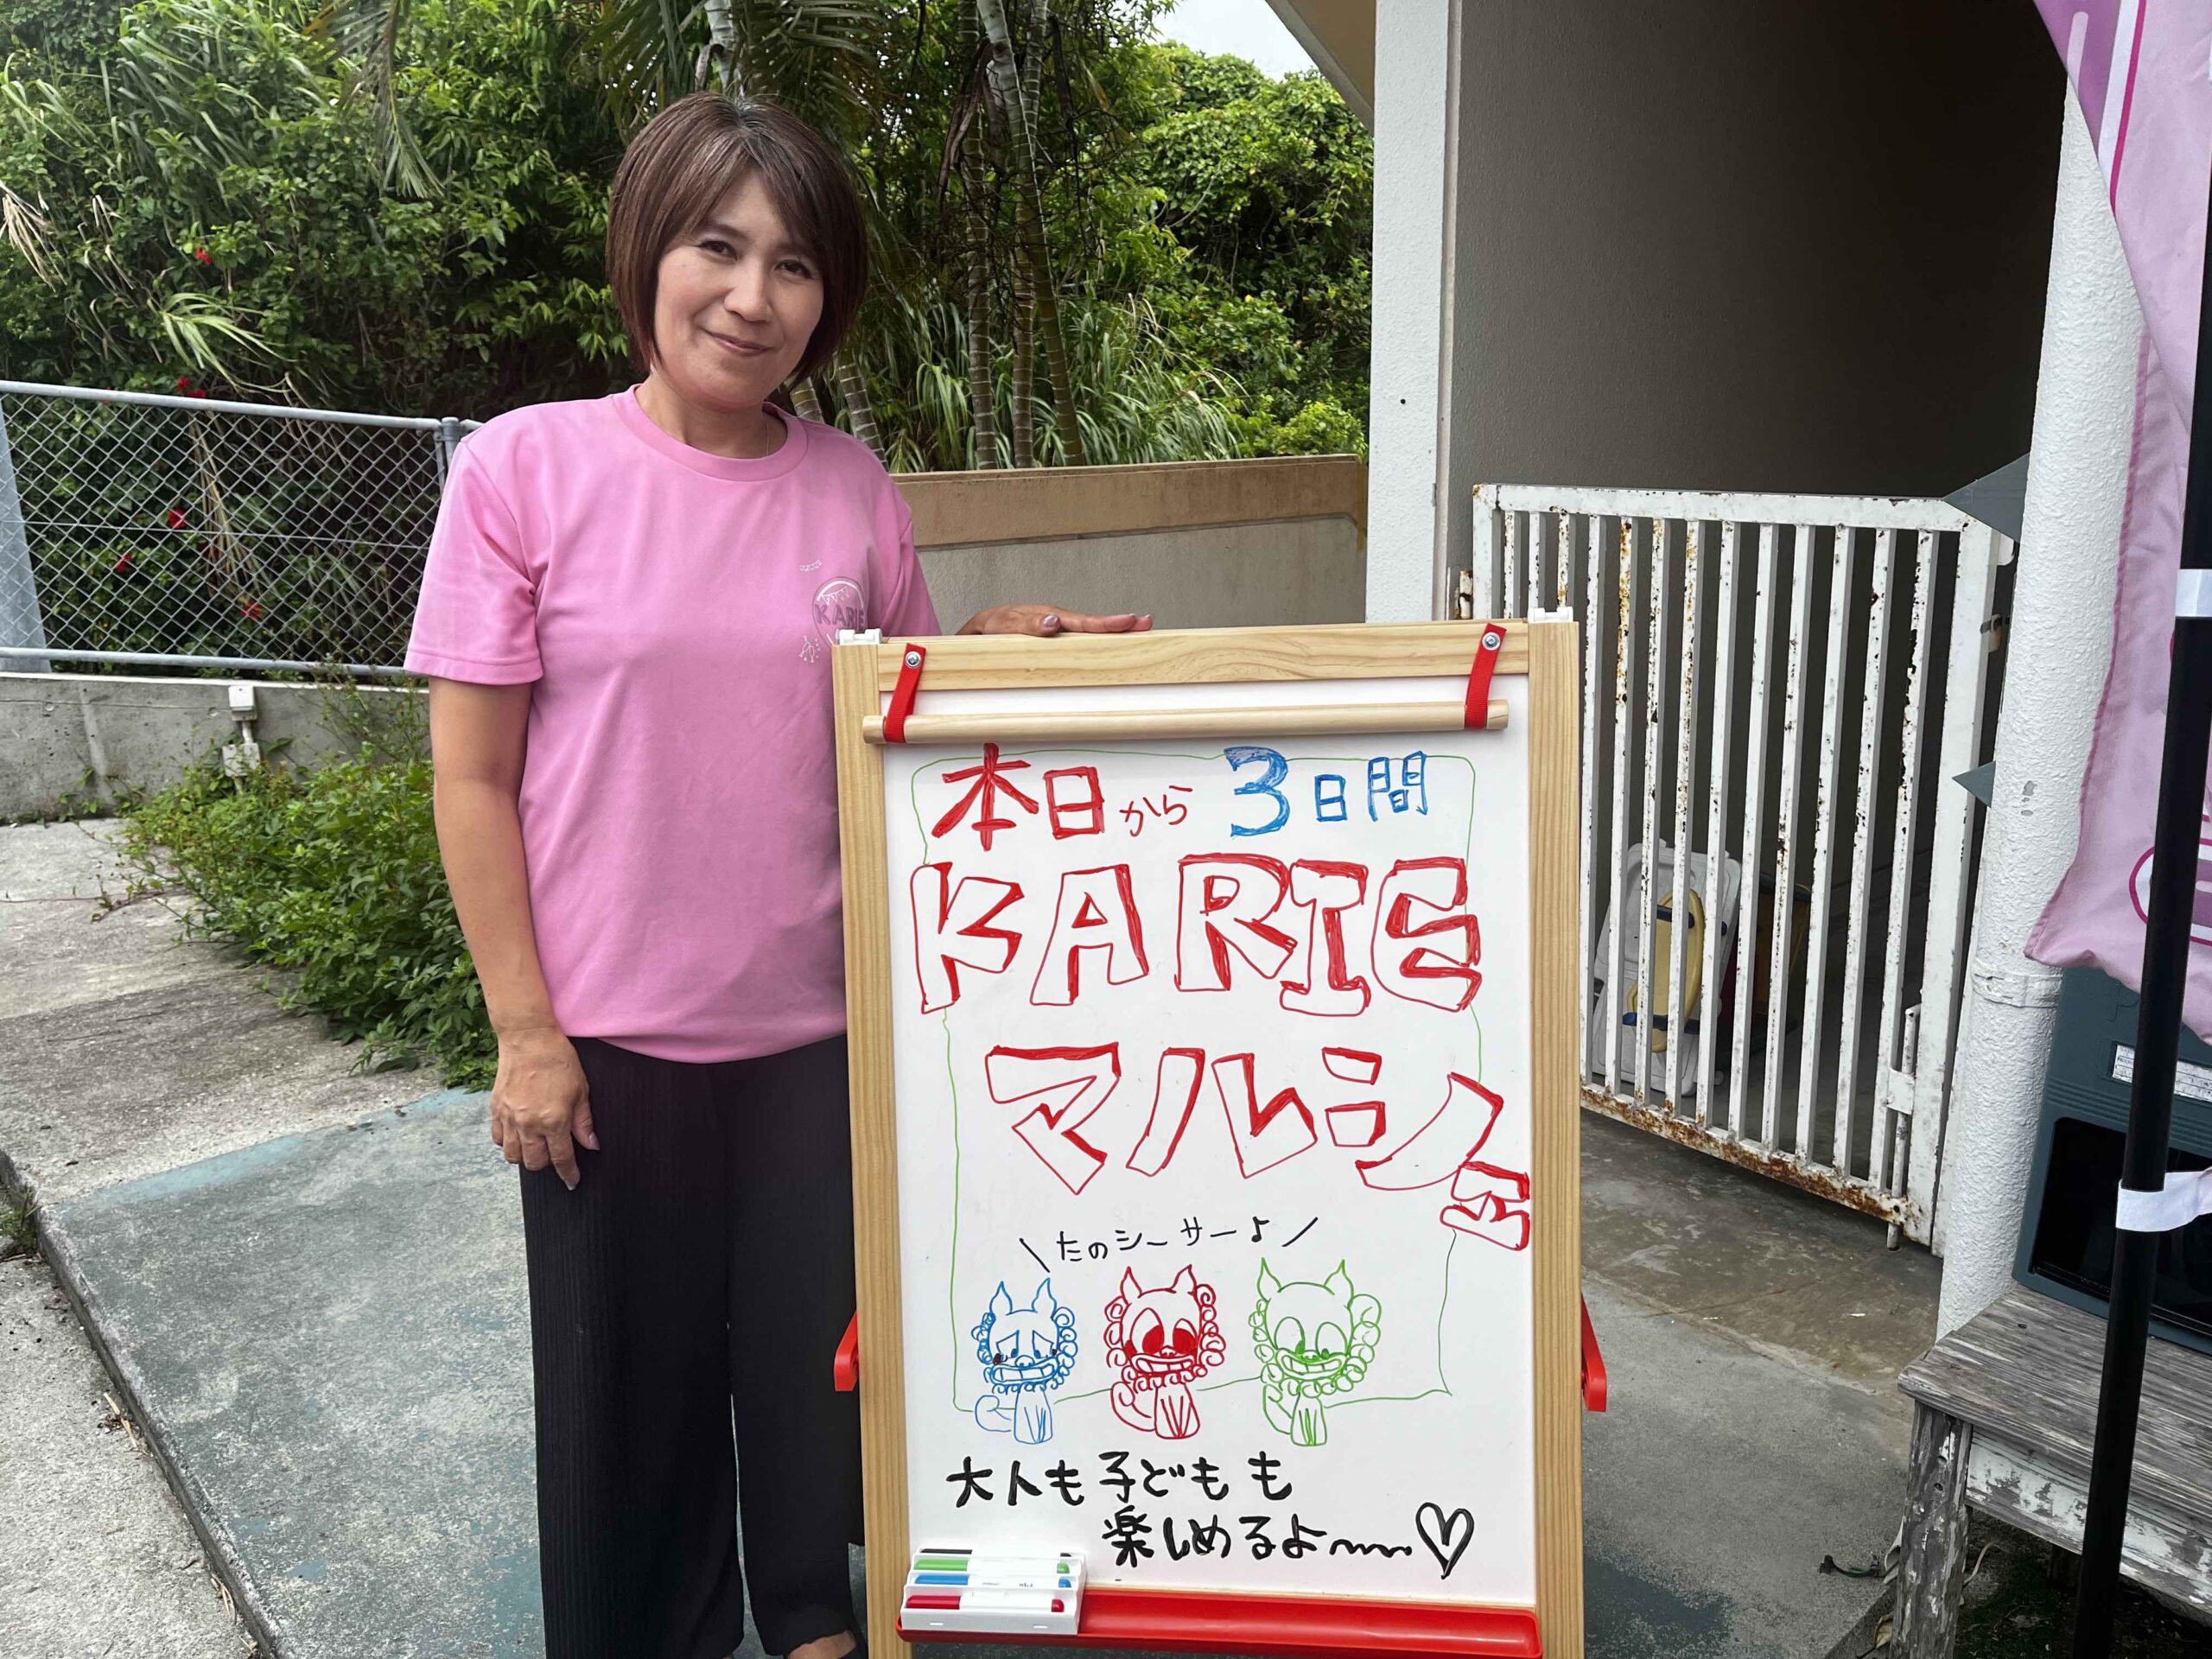 KARIE
本日から3日間
KARIE
マルシェ
\たのシーサーよ/
大人も子どもも
楽しめるよ〜〜♡